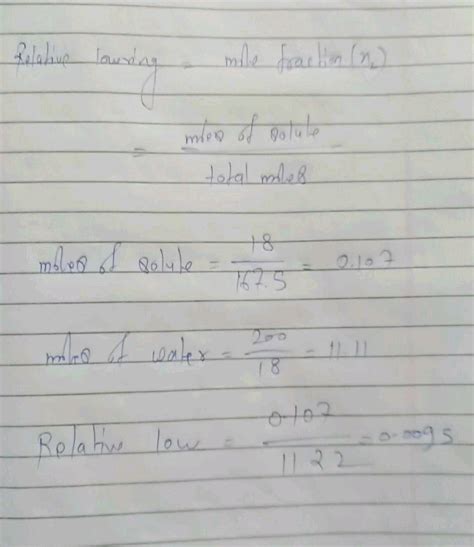 Relative lowring = mole fraction (x₂)
= moles of solute
total moles
moles of solute = 18 / 167.5 = 0.107
moles of water = 200 / 18 = 11.11
Relative low = 0.107 / 11.22 = 0.0095